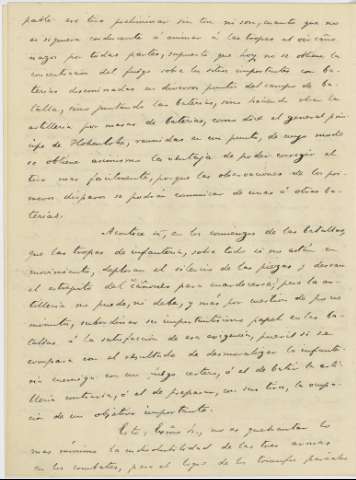 este tiro preliminar sin ton ni son, cuanto que no
es siquiera conducente á animar á las tropas el oir caño-
nazos por todas partes, supuesto que hoy no se obtiene la
concentración del fuego sobre los sitios importantes con ba-
terías diseminadas en diversos puntos del campo de ba-
talla, sino juntando las baterías, sino haciendo obrar la
artillería por masas de baterías, como dice el general prín-
cipe de Hohenlohe, reunidas en un punto, de cuyo modo
se obtiene asimismo la ventaja de poder corregir el
tiro mas facilmente, porque las observaciones de los pri-
meros disparos se podrán comunicar de unas á otras ba-
terías.
Acontece sí, en los comienzos de las batallas,
que las tropas de infantería, sobre todo si no están en
movimiento, deploran el silencio de las piezas y desean
el estrépito del cañoneo para enardecerse; pero la ar-
tillería no puede, ni debe, y más por cuestion de pocos
minutos, subordinar su importantísimo papel en las ba-
tallas á la satisfacción de esa exigencia, pueril si se
compara con el resultado de desmoralizar la infante-
ría enemiga con un fuego certero, ó el de batir la arti-
llería contraria, ó el de preparar, con sus tiros, la ocupa-
ción de un objetivo importante.
Esto, no es quebrantar lo
mas mínimo la indisolubilidad de las tres armas
en los combates, para el logro de los triunfos parciales